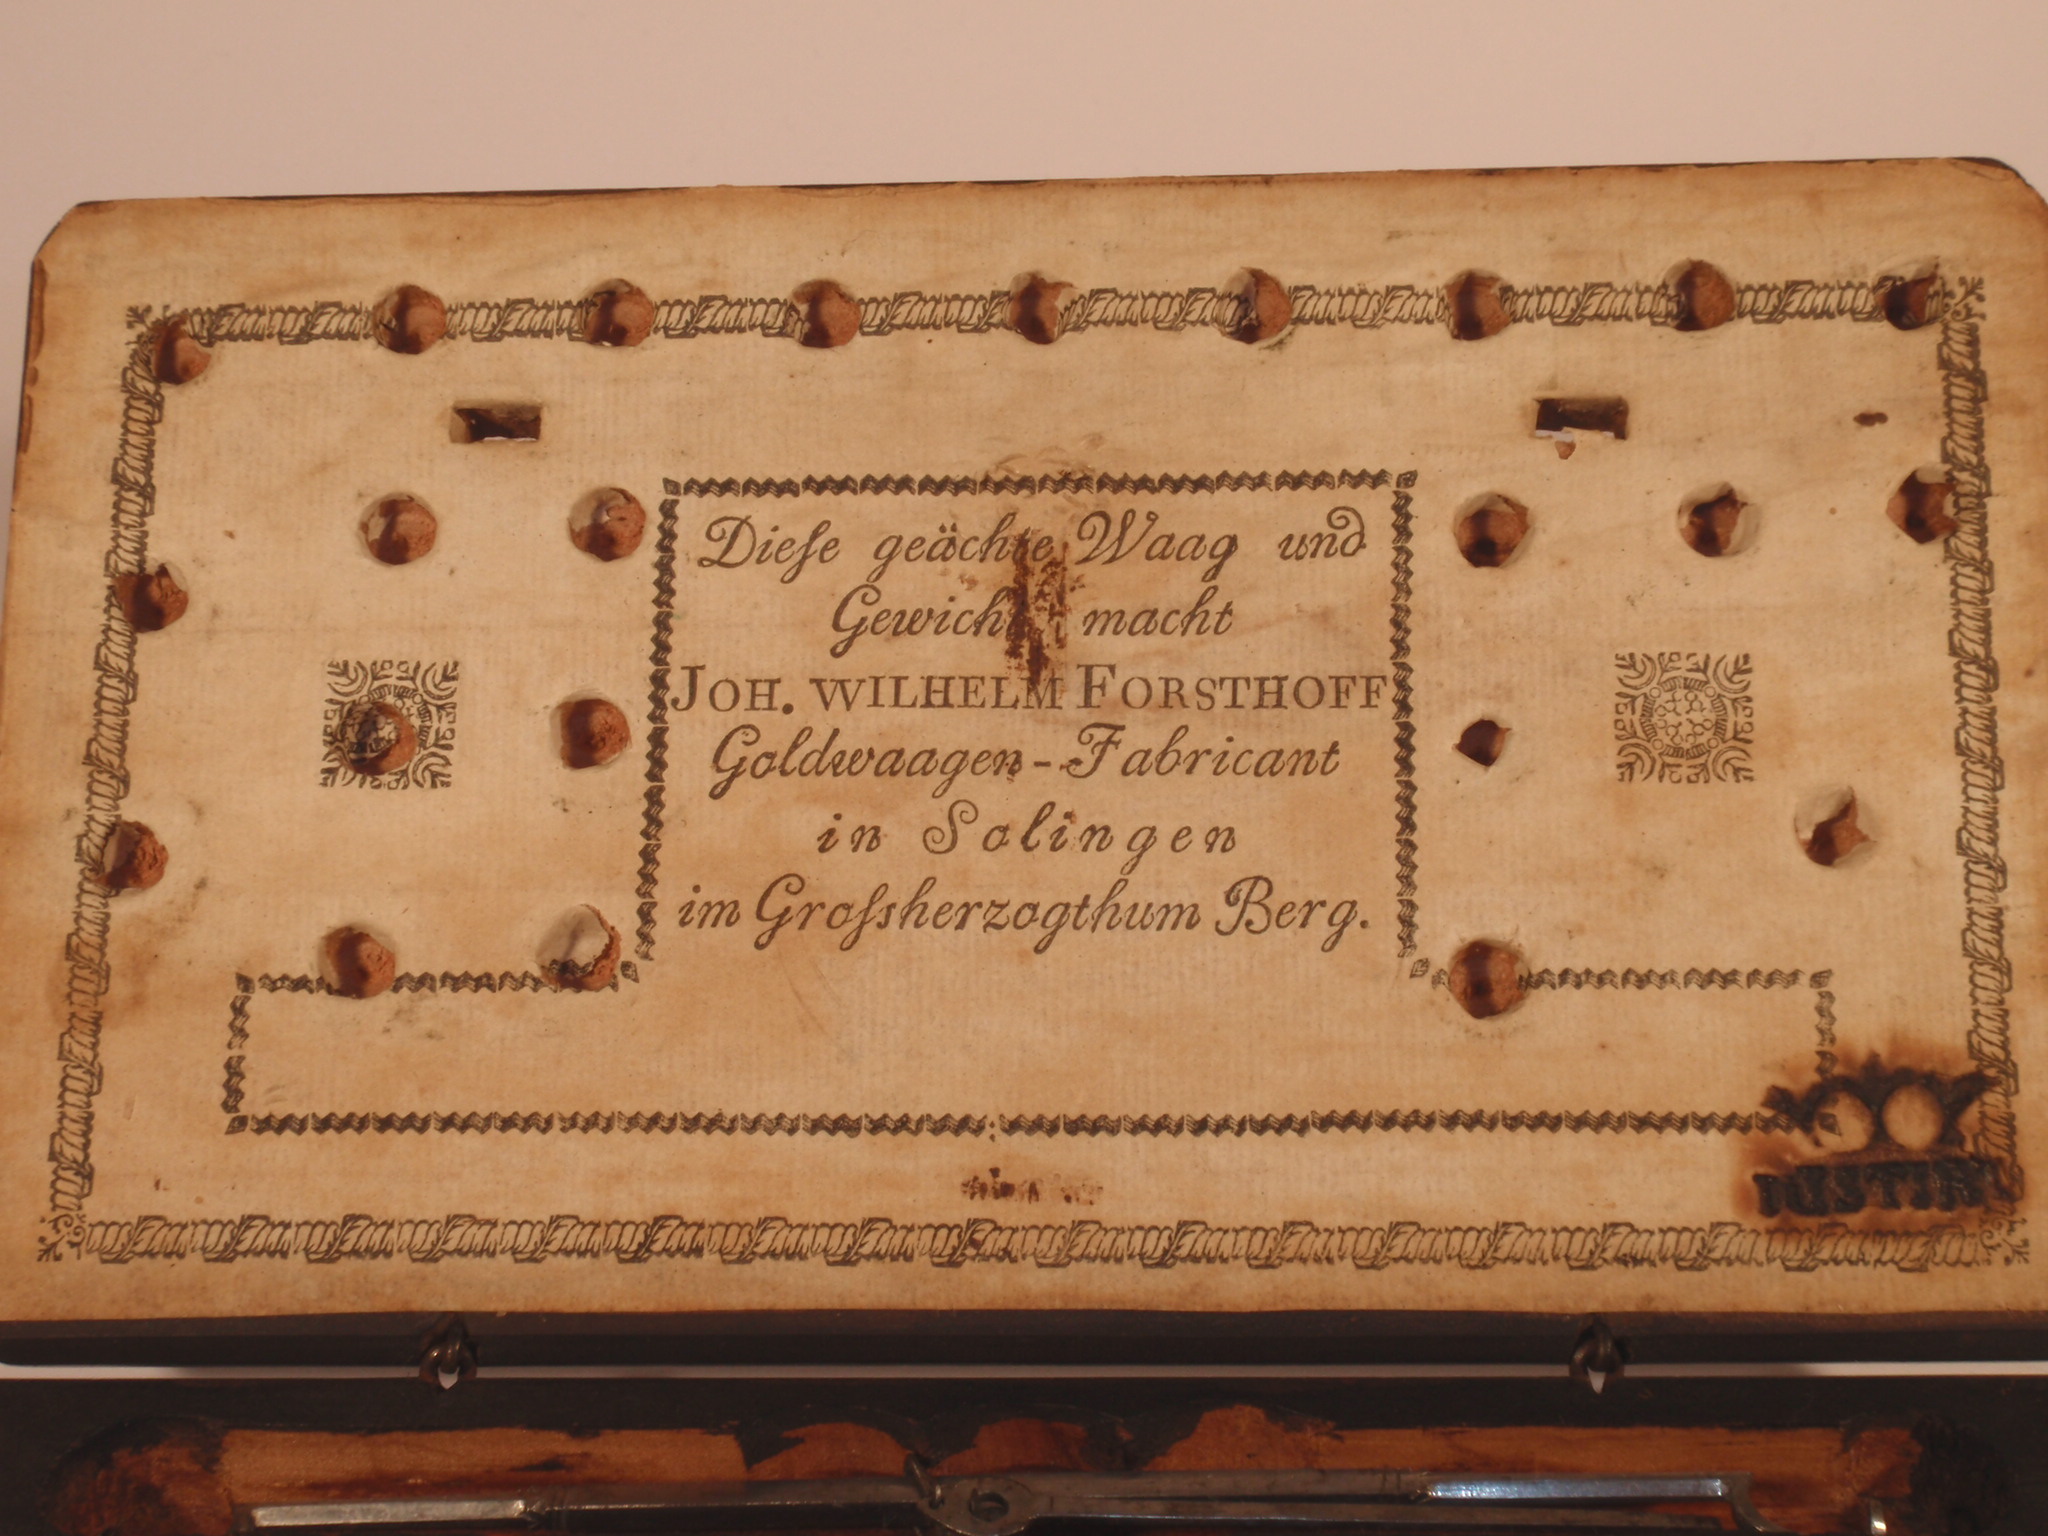 Dieſe geächte Waag und
Gewicht macht
JOH. WILHELM FORSTHOFF
Goldwaagen-Fabricant
in Solingen
im Groſsherzogthum Berg.